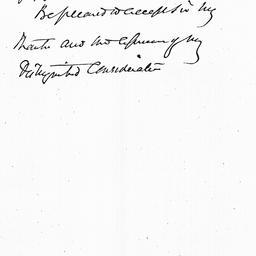 Be pleased to accept Sir my
thanks and the expression of my
Distinguished Consideration